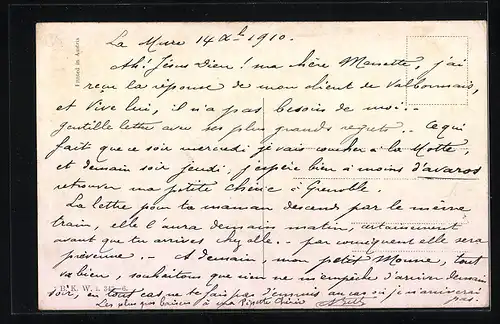 La Mure 14 Xb 1910.
Ah! Jésus Dieu! ma chère Mousette, j'ai
reçu la réponse de mon client de Valbonnais,
et Vive lui, il n'a pas besoin de moi..
gentille lettre avec ses plus grands regrets.. Ce qui
fait que ce soir mercredi je vais coucher à la Motte,
et demain soir jeudi, j'espère bien à moins d'avaros
retrouver ma petite chérie à Grenoble.
La lettre pour ta maman descend par le même
train, elle l'aura demain matin, certainement
avant que tu arrives chez elle.. par conséquent elle sera
prévenue.. A demain, mon petit Moune, tout
va bien, souhaitons que rien ne m'empêche d'arriver demain
soir, en tout cas ne te fais pas d'ennuis au cas où je n'arriverai
pas.
Les plus gros baisers à ma Pépette chérie
Printed in Austria
B. K. W. I.